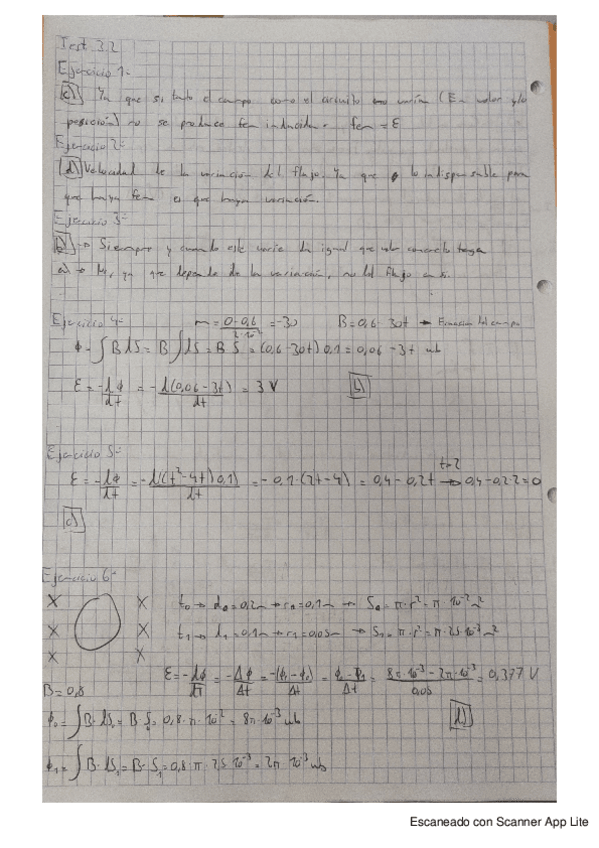 Test 3.2
Ejercicio 1:
c) Ya que si tanto el campo como el circuito no varía (En valor y/o
posición) no se produce fem inducida. fem = ε
Ejercicio 2:
d) Velocidad de la variación del flujo. Ya que lo indispensable para
que haya fem es que haya variación.
Ejercicio 3:
b) → Siempre y cuando este varíe da igual que valor concreto tenga
a) → No, ya que depende de la variación, no del flujo en sí.
Ejercicio 4: m = (0-0,6)/(2·10⁻²) = -30 B = 0,6-30t → Ecuación del campo
ϕ = ∫B dS = B∫dS = B·S = (0,6-30t)0,1 = 0,06-3t wb
ε = -dϕ/dt = -d(0,06-3t)/dt = 3 V b)
Ejercicio 5:
ε = -dϕ/dt = -d((t²-4t)0,1)/dt = -0,1·(2t-4) = 0,4-0,2t t=2 → 0,4-0,2·2=0
c)
Ejercicio 6:
X X t₀ → d₀=0,2m → r₀=0,1m → S₀=π·r²=π·10⁻²m²
X X t₁ → d₁=0,1m → r₁=0,05m → S₁=π·r²=π·2,5·10⁻³m²
X X
B=0,8 ε = -dϕ/dt = -Δϕ/Δt = -(ϕ₁-ϕ₀)/Δt = (ϕ₀-ϕ₁)/Δt = (8π·10⁻³-2π·10⁻³)/0,05 = 0,377 V
ϕ₀ = ∫B·dS₀ = B·S₀ = 0,8·π·10⁻² = 8π·10⁻³ wb d)
ϕ₁ = ∫B·dS₁ = B·S₁ = 0,8·π·2,5·10⁻³ = 2π·10⁻³ wb
Escaneado con Scanner App Lite